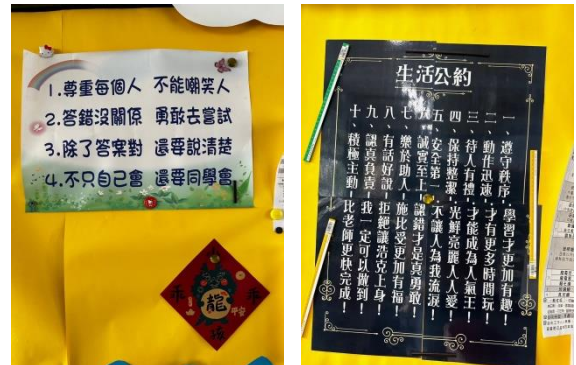 1.尊重每個人 不能嘲笑人
2.答錯沒關係 勇敢去嘗試
3.除了答案對 還要說清楚
4.不只自己會 還要同學會
龍
生活公約
一、遵守秩序-學習才更加有趣!
二、動作迅速-才有更多時間玩!
三、待人有禮-才能成為人氣王!
四、保持整潔-光鮮亮麗人人愛!
五、安全第一-不讓人為我流淚!
六、誠實至上-認錯才是真勇敢!
七、樂於助人-施比受更加有福!
八、有話好說-拒絕讓浩克上身!
九、認真負責-我一定可以做到!
十、積極主動-比老師更快完成!